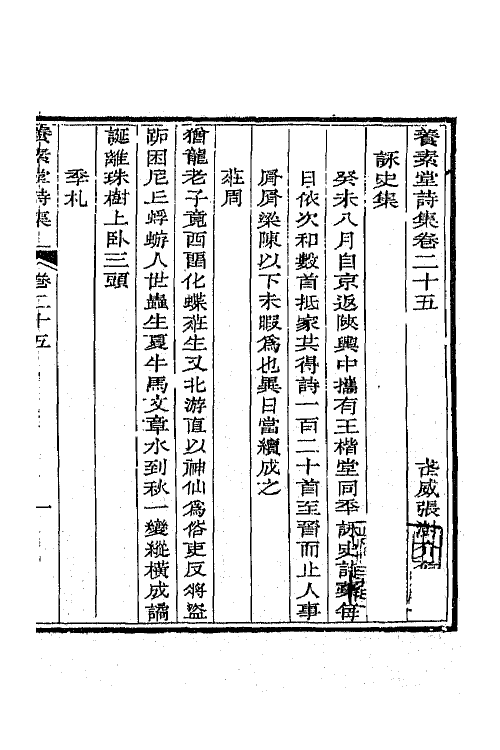 養素堂詩集卷二十五
武威張澍介侯
詠史集
癸未八月自京返陝輿中攜有王楷堂同年詠史詩藁每
日依次和數首抵家共得詩一百二十首至晉而止人事
屑屑梁陳以下未暇爲也異日當續成之
莊周
猶龍老子竟西酉化蝶莊生又北游直以神仙爲俗吏反將盜
跖困尼丘蜉蝣人世蟲生夏牛馬文章水到秋一變縱橫成譎
誕離珠樹上卧三頭
季札
養素堂詩集
卷二十五
一